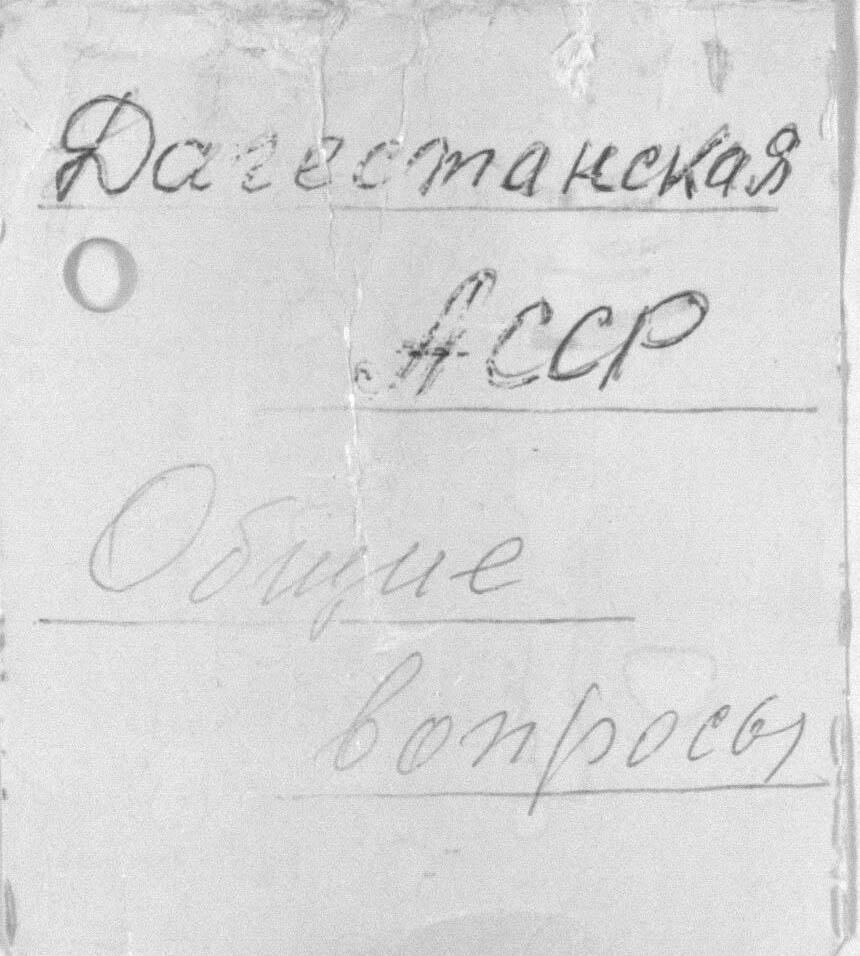 Дагестанская
АССР
Общие
вопросы